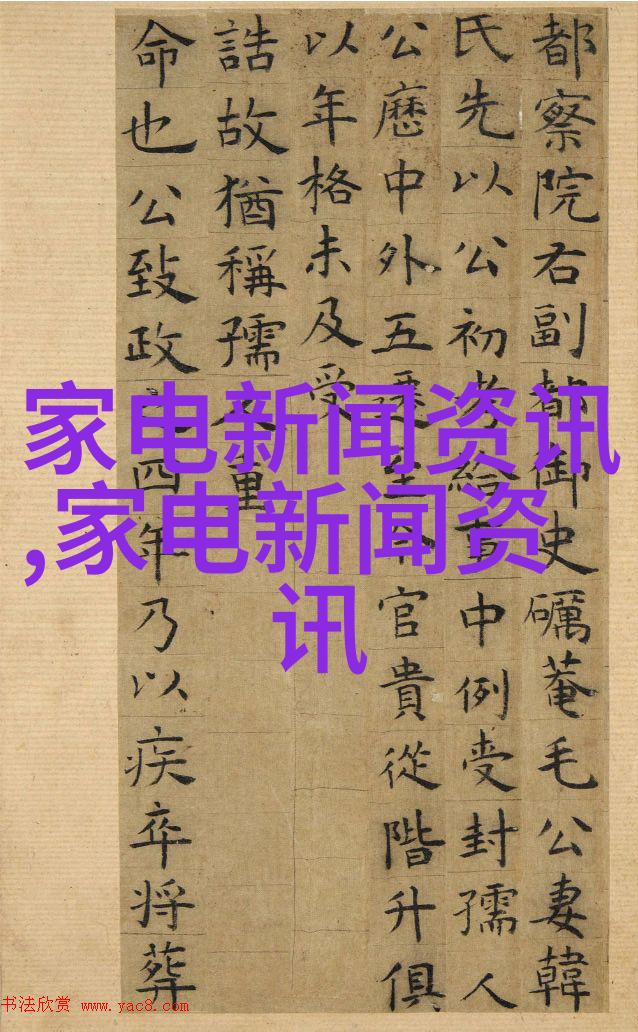 都察院右副都御史礪菴毛公妻韓
氏先以公初考給事中例受封孺人
公歷中外五遷至今官貴從階升俱
以年格未及受
誥故猶稱孺人重
命也公致政之四年乃以疾卒將葬
家电新闻资讯
,家电新闻资
讯
书法欣赏 www.yac8.com